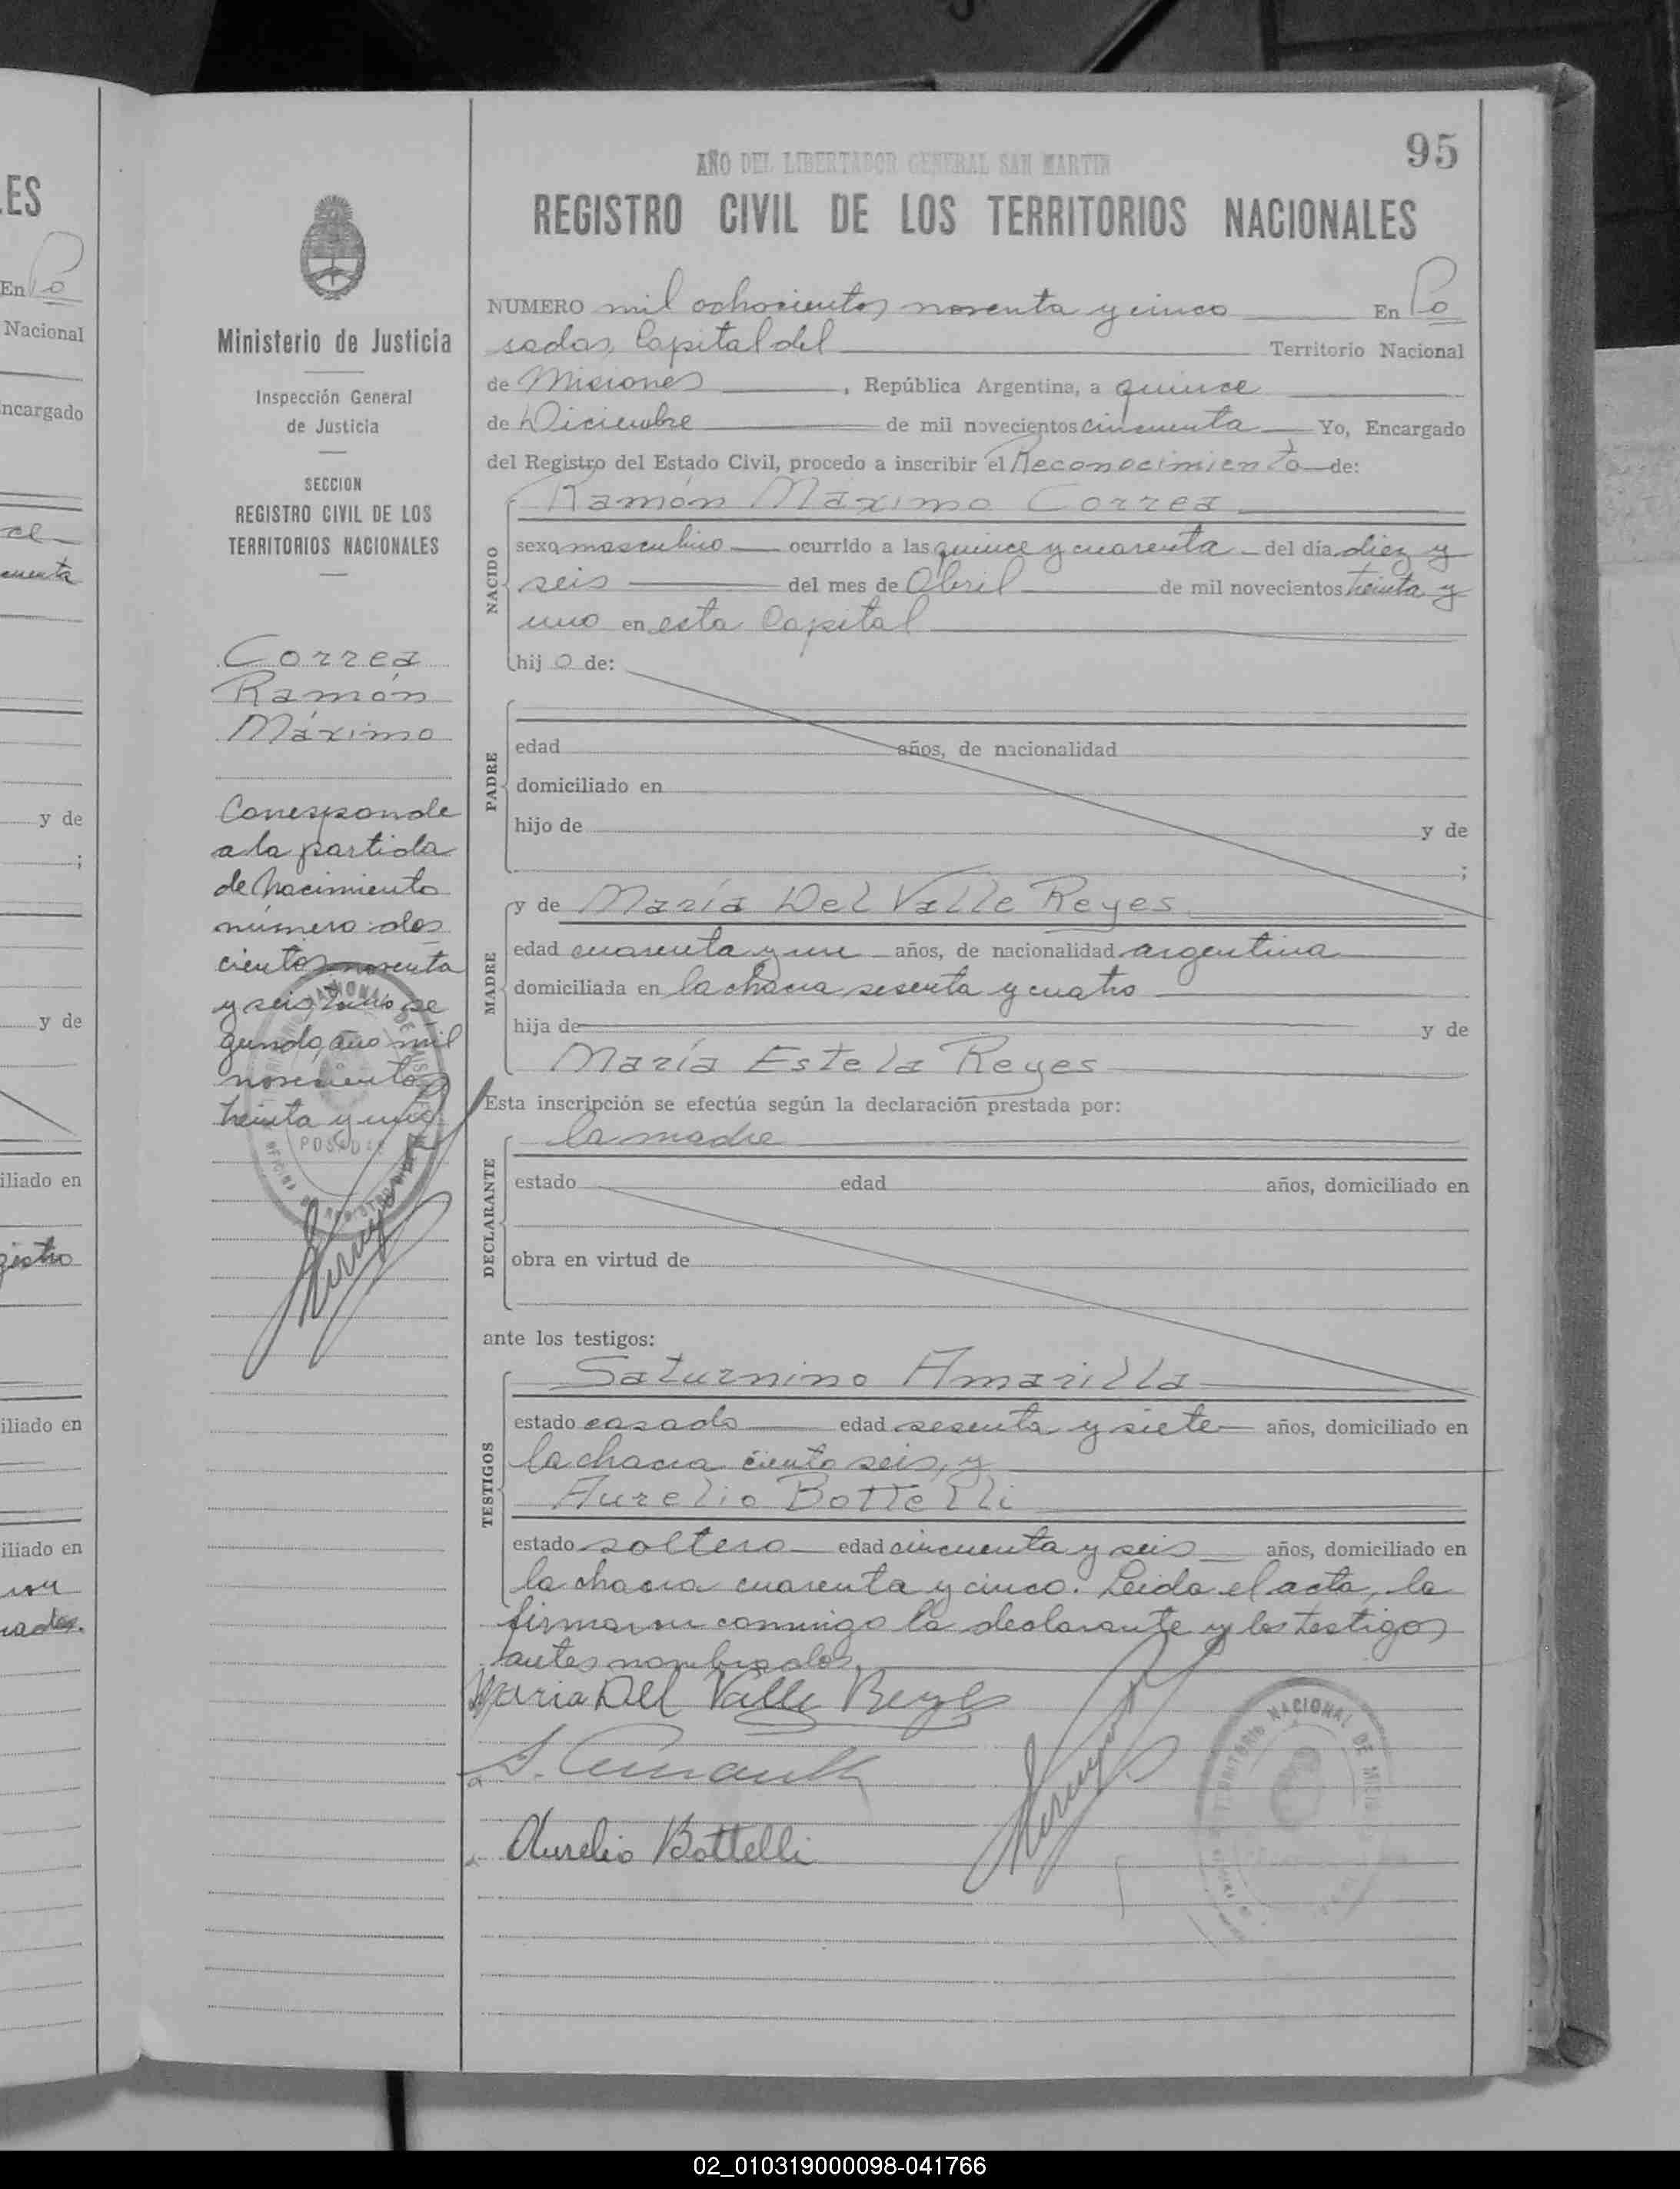 95
AÑO DEL LIBERTADOR GENERAL SAN MARTIN
REGISTRO CIVIL DE LOS TERRITORIOS NACIONALES
NUMERO mil ochocientos noventa y cinco En Po
sadas, Capital del Territorio Nacional
de Misiones, República Argentina, a quince
de Diciembre de mil novecientos cincuenta Yo, Encargado
del Registro del Estado Civil, procedo a inscribir el Reconocimiento de:
Ramón Máximo Correa
NACIDO
sexo masculino ocurrido a las quince y cuarenta del día diez y
seis del mes de Abril de mil novecientos treinta y
uno en esta Capital
hij o de:
PADRE
edad años, de nacionalidad
domiciliado en
hijo de y de
;
MADRE
y de María Del Valle Reyes
edad cuarenta y un años, de nacionalidad argentina
domiciliada en la chacra sesenta y cuatro
hija de y de
María Estela Reyes
Esta inscripción se efectúa según la declaración prestada por:
DECLARANTE
la madre
estado edad años, domiciliado en
obra en virtud de
ante los testigos:
TESTIGOS
Saturnino Amarilla
estado casado edad sesenta y siete años, domiciliado en
la chacra ciento seis, y
Aurelio Bottelli
estado soltero edad cincuenta y seis años, domiciliado en
la chacra cuarenta y cinco. Leida el acta, la
firmaron conmigo la declarante y los testigos
antes nombrados.
Maria Del Valle Reyes
Aurelio Bottelli
TERRITORIO NACIONAL DE
Ministerio de Justicia
Inspección General
de Justicia
SECCION
REGISTRO CIVIL DE LOS
TERRITORIOS NACIONALES
Correa
Ramón
Máximo
Corresponde
a la partida
de nacimiento
número dos
cientos noventa
y seis, tomo se
gundo, año mil
novecientos
treinta y uno
POSADAS
ES
En Po
Nacional
ncargado
cuenta
y de
;
y de
iliado en
gistro
iliado en
iliado en
ron
rados.
02_010319000098-041766